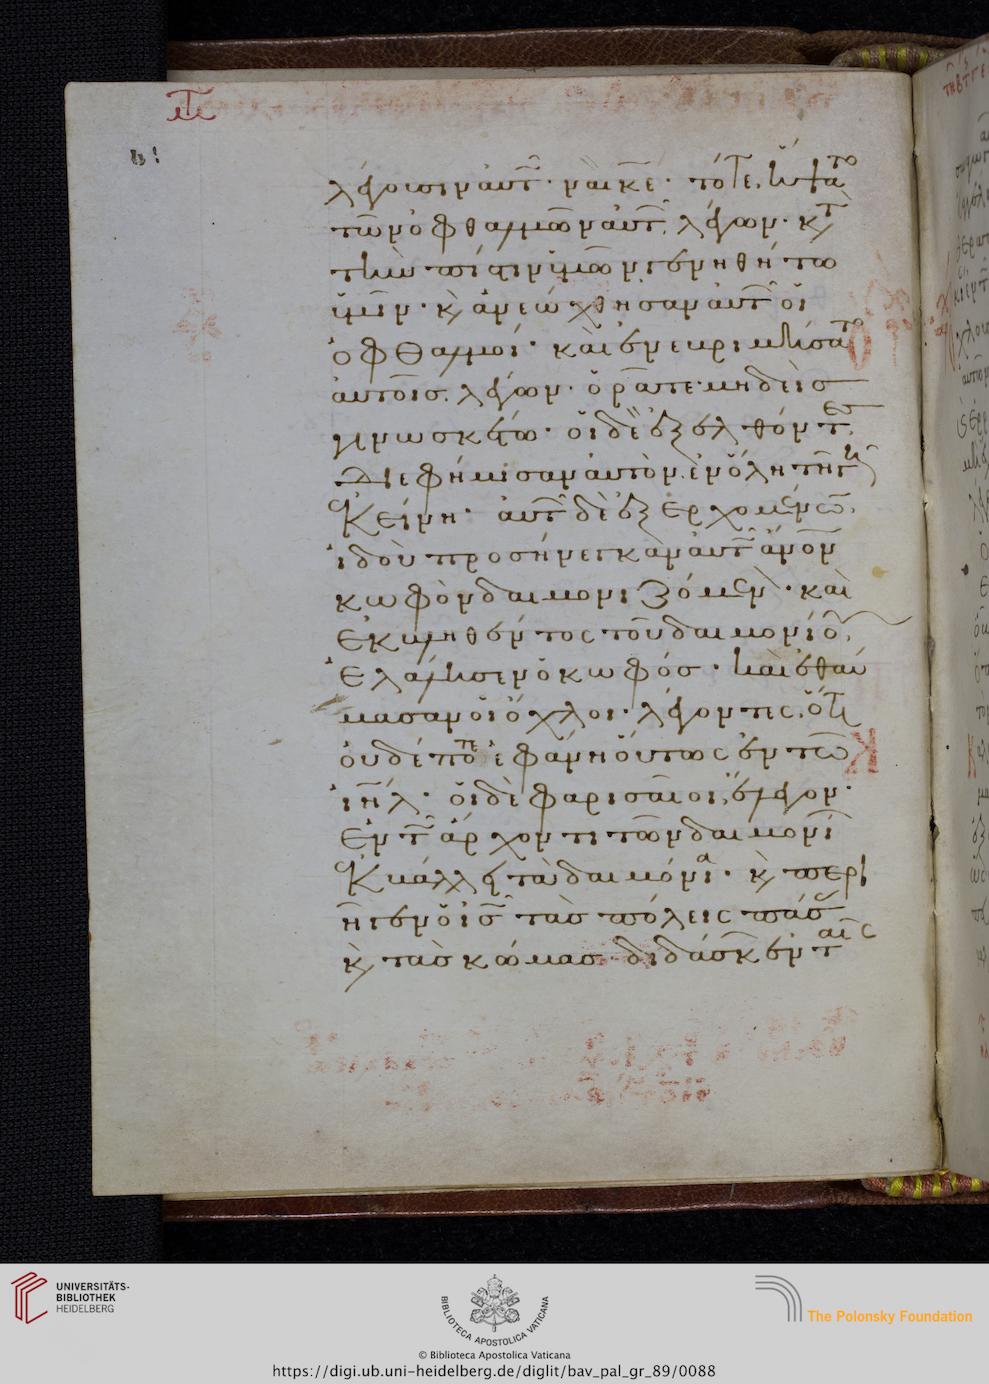 λέγουσιν αὐτῶ· ναὶ κε· τότε ἥψατο
τῶν ὀφθαλμῶν αὐτῶν λέγων· κτ
τὴν πίστιν ὑμῶν γενηθήτω
ὑμῖν· κ ἀνεώχθησαν αὐτῶν οἱ
ὀφθαλμοί· καὶ ἐνεβριμήσατο
αὐτοῖς λέγων· ὁρᾶτε μηδεὶς
γινωσκέτω· οἱ δὲ ἐξελθόντες
διεφήμισαν αὐτὸν ἐν ὅλη τῆ γῆ
ἐκείνη· αὐτῶν δὲ ἐξερχομένων
ἰδοὺ προσήνεγκαν αὐτῶ ἄνον
κωφὸν δαιμονιζόμενον· καὶ
ἐκβληθέντος τοῦ δαιμονίου
ἐλάλησεν ὁ κωφός· καὶ ἐθαύ
μασαν οἱ ὄχλοι· λέγοντες ὅτι
οὐδέποτε ἐφάνη οὕτως ἐν τῶ
ιηλ· οἱ δὲ φαρισαῖοι ἔλεγον·
ἐν τῶ ἄρχοντι τῶν δαιμονίων
ἐκβάλλει τὰ δαιμόνια· κ περι
ῆγεν ὁ ις τὰς πόλεις πάσας
κ τὰς κώμας διδάσκων ἐν ταῖς
UNIVERSITÄTS-
BIBLIOTHEK
HEIDELBERG
BIBLIOTECA APOSTOLICA VATICANA
The Polonsky Foundation
© Biblioteca Apostolica Vaticana
https://digi.ub.uni-heidelberg.de/diglit/bav_pal_gr_89/0088